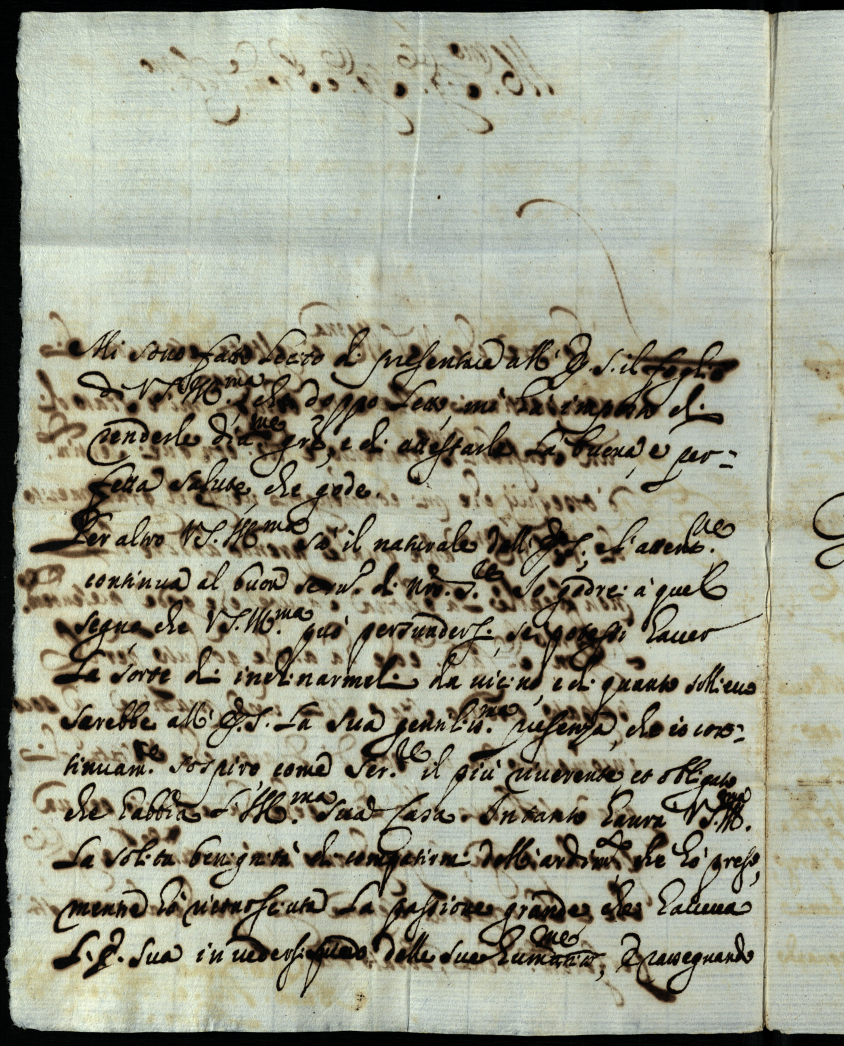 Mi sono fatto lecito di presentare all' E. S. il foglio
di V.S. Ill.ma, che doppo letto, mi hà imposto di
renderle d'ia grẽ, e di attestarle la buona, e per=
fetta salute, che gode.
Per altro V.S. Ill.ma sà il naturale dell' E. S., e l'attent.ne
continua al buon seru.o di
segno che V.S. Ill.ma può persuadersi, se potessi hauer
la sorte di inchinarmeli da uicino, e di quanto sollieuo
sarebbe all' E. S. la sua gentiliss.ma presenza, che io con=
tinuam.te sospiro, come ser.re il più riuerente et obligato
che habbia l' Ill.ma sua Casa. Intanto haurà V.S. Ill.ma
la solita benignità di compatirmi dell' ardim.to che hò preso,
mentre hò riconosciuta la passione grande che haueua
l' E. sua in uedersi delle sue, rassegnando